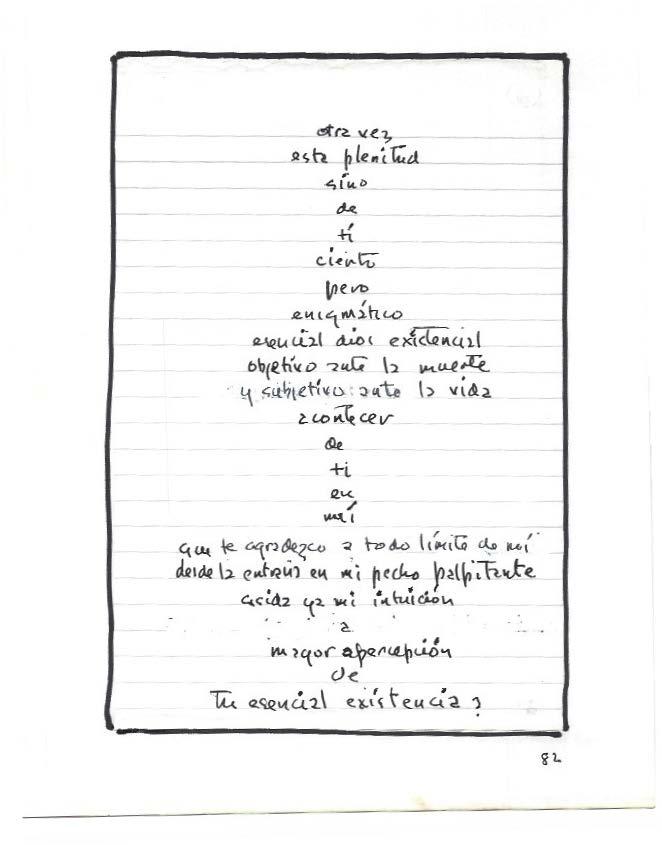 otra vez
esta plenitud
sino
de
tí
cierto
pero
enigmático
esencial dios existencial
objetivo ante la muerte
y subjetivo ante la vida
acontecer
de
ti
en
mí
que te agradezco a todo límite de mí
desde la entraña en mi pecho palpitante
asida ya mi intuición
a
mayor apercepción
de
Tu esencial existencia?
82